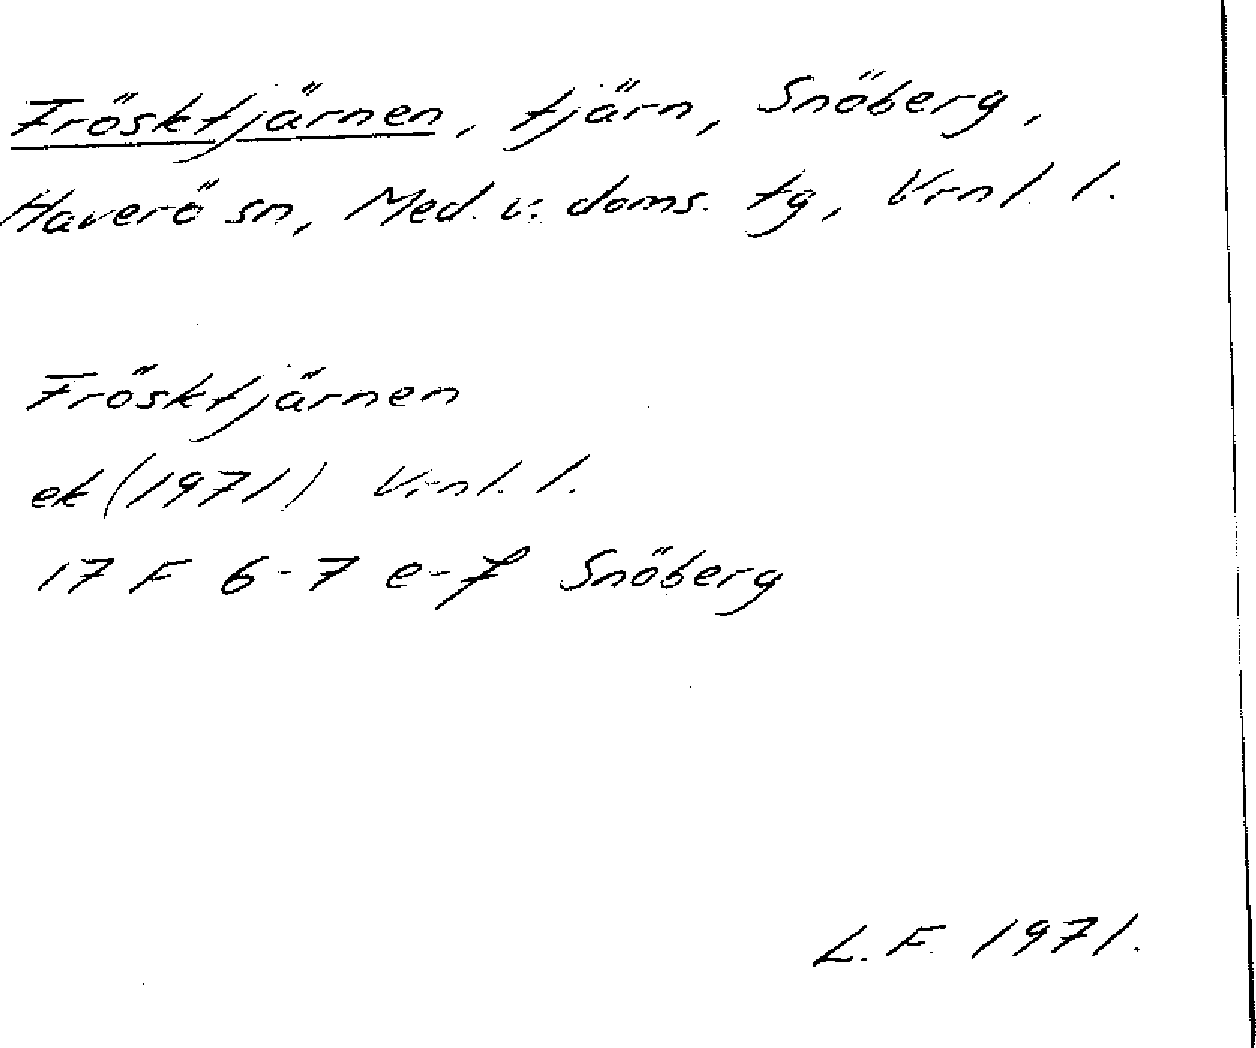 Frösktjärnen, tjärn, Snöberg,
Haverö sn, Med. v. doms. tg, Vrnl. l.
Frösktjärnen
ek (1971) Vrnl. l.
17 F 6-7 e-f Snöberg
L. F. 1971.